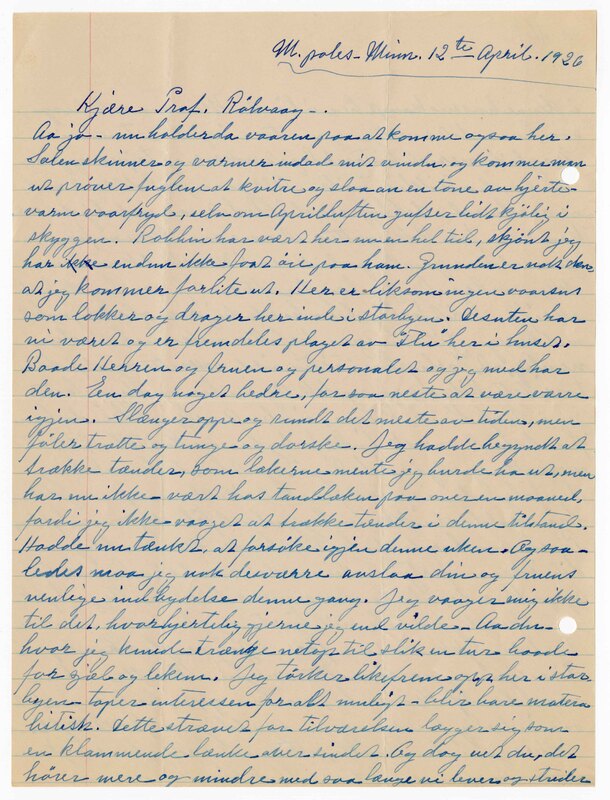 M.poles - Minn. 12te April. 1926
Kjære Prof. Rölvaag -.
Aa jo - nu holder da vaaren paa at komme ogsaa her.
Solen skinner og varmer indad mit vindu, og kommer man
ut prøver fuglene at kvitre og slaa an en tone av hjerte-
varm vaarfryd, selv om Aprilluften gufser lidt kjölig i
skyggen. Robbin har vært her nu en hel tid, skjönt jeg
har ikke endnu ikke faat öie paa ham. Grunden er nok den
at jeg kommer for lite ut. Her er liksom ingen vaarsus
som lokker og drager her inde i storbyen. Desuten har
vi været og er fremdeles plaget av "Flu" her i huset.
Baade Herren og fruen og personalet og jeg med har
den. En dag noget bedre, for saa neste at være værre
igjen. Slænger oppe og rundt det meste av tiden, men
föler trætte og tunge og dorske. Jeg hadde begyndt at
trække tænder, som lækerne mente jeg burde ha ut, men
har nu ikke vært hos tandlæken paa over en maaned,
fordi jeg ikke vaaget at trække tænder i denne tilstand.
Hadde nu tænkt, at forsöke igjen denne uken. Og saa-
ledes maa jeg nok desværre avslaa din og fruens
venlige indbydelse denne gang. Jeg vaager mig ikke
til det, hvor hjertelig gjerne jeg end vilde - Aa du -
hvor jeg kunde trænge netop til slik en tur baade
for sjæl og lekem. Jeg törker likefrem opp her i stor
byen - taper interessen for alt muligt - blir bare matera
listisk. Dette strævet for tilværelsen lægger sig som
en klammende lænke over sindet. Og dog vet du, det
hører mere og mindre med saa længe vi lever og strider